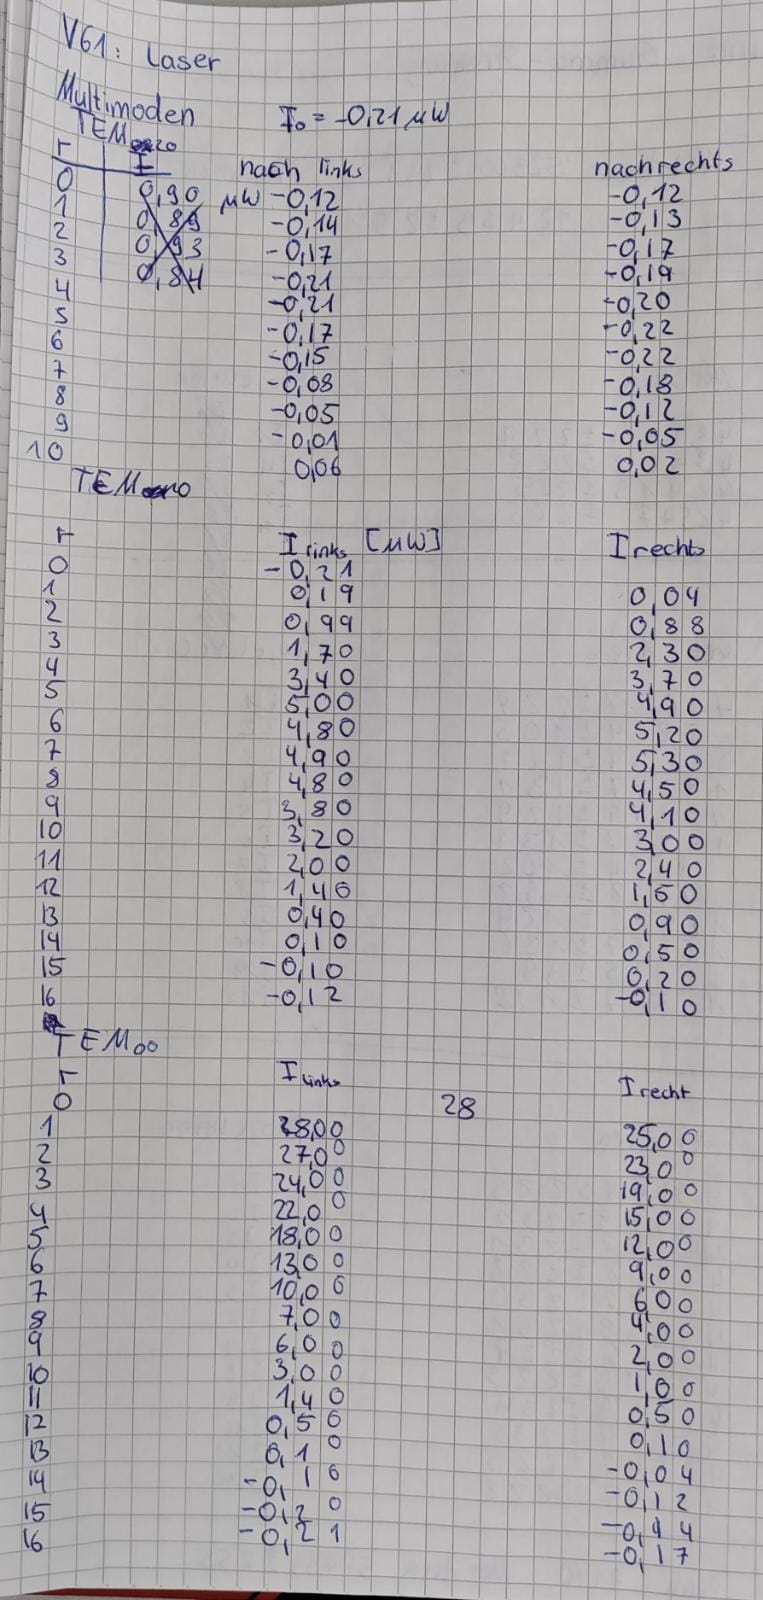 V61: Laser
Multimoden I₀ = -0,21 μW
TEM₂₀
r I nach links nach rechts
0 0,90 μW -0,12 -0,12
1 0,89 -0,14 -0,13
2 0,93 -0,17 -0,17
3 0,84 -0,21 -0,19
4 -0,21 -0,20
5 -0,17 -0,22
6 -0,15 -0,22
7 -0,08 -0,18
8 -0,05 -0,12
9 -0,01 -0,05
10 0,06 0,02
TEM₁₀
r I links [μW] I rechts
0 -0,21
1 0,19 0,04
2 0,99 0,88
3 1,70 2,30
4 3,40 3,70
5 5,00 4,90
6 4,80 5,20
7 4,90 5,30
8 4,80 4,50
9 3,80 4,10
10 3,20 3,00
11 2,00 2,40
12 1,40 1,50
13 0,40 0,90
14 0,10 0,50
15 -0,10 0,20
16 -0,12 -0,10
TEM₀₀
r I links I recht
0 28
1 28,00 25,00
2 27,00 23,00
3 24,00 19,00
4 22,00 15,00
5 18,00 12,00
6 13,00 9,00
7 10,00 6,00
8 7,00 4,00
9 6,00 2,00
10 3,00 1,00
11 1,40 0,50
12 0,50 0,10
13 0,10 -0,04
14 -0,10 -0,12
15 -0,20 -0,14
16 -0,21 -0,17